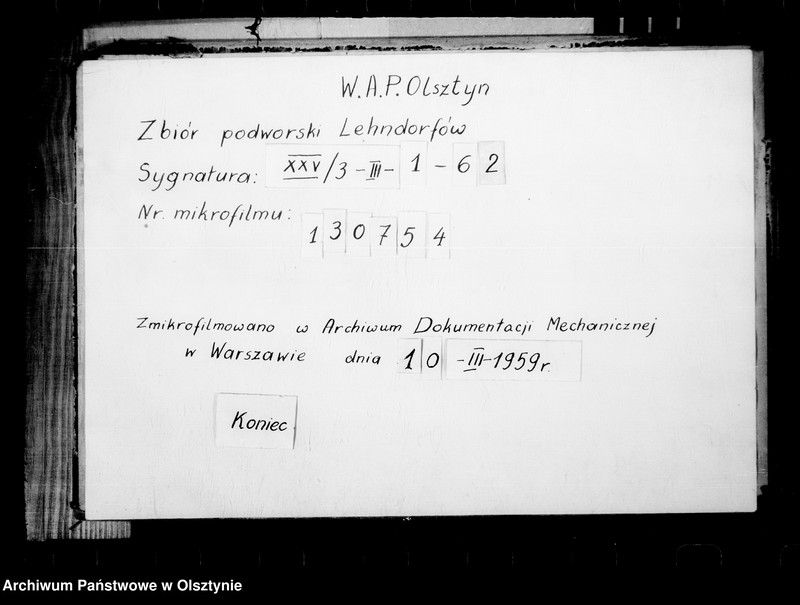 W.A.P. Olsztyn
Zbiór podworski Lehndorfów
Sygnatura: XXV/3-III-1-62
Nr. mikrofilmu: 130754
Zmikrofilmowano w Archiwum Dokumentacji Mechanicznej
w Warszawie dnia 10-III-1959r.
Koniec
Archiwum Państwowe w Olsztynie